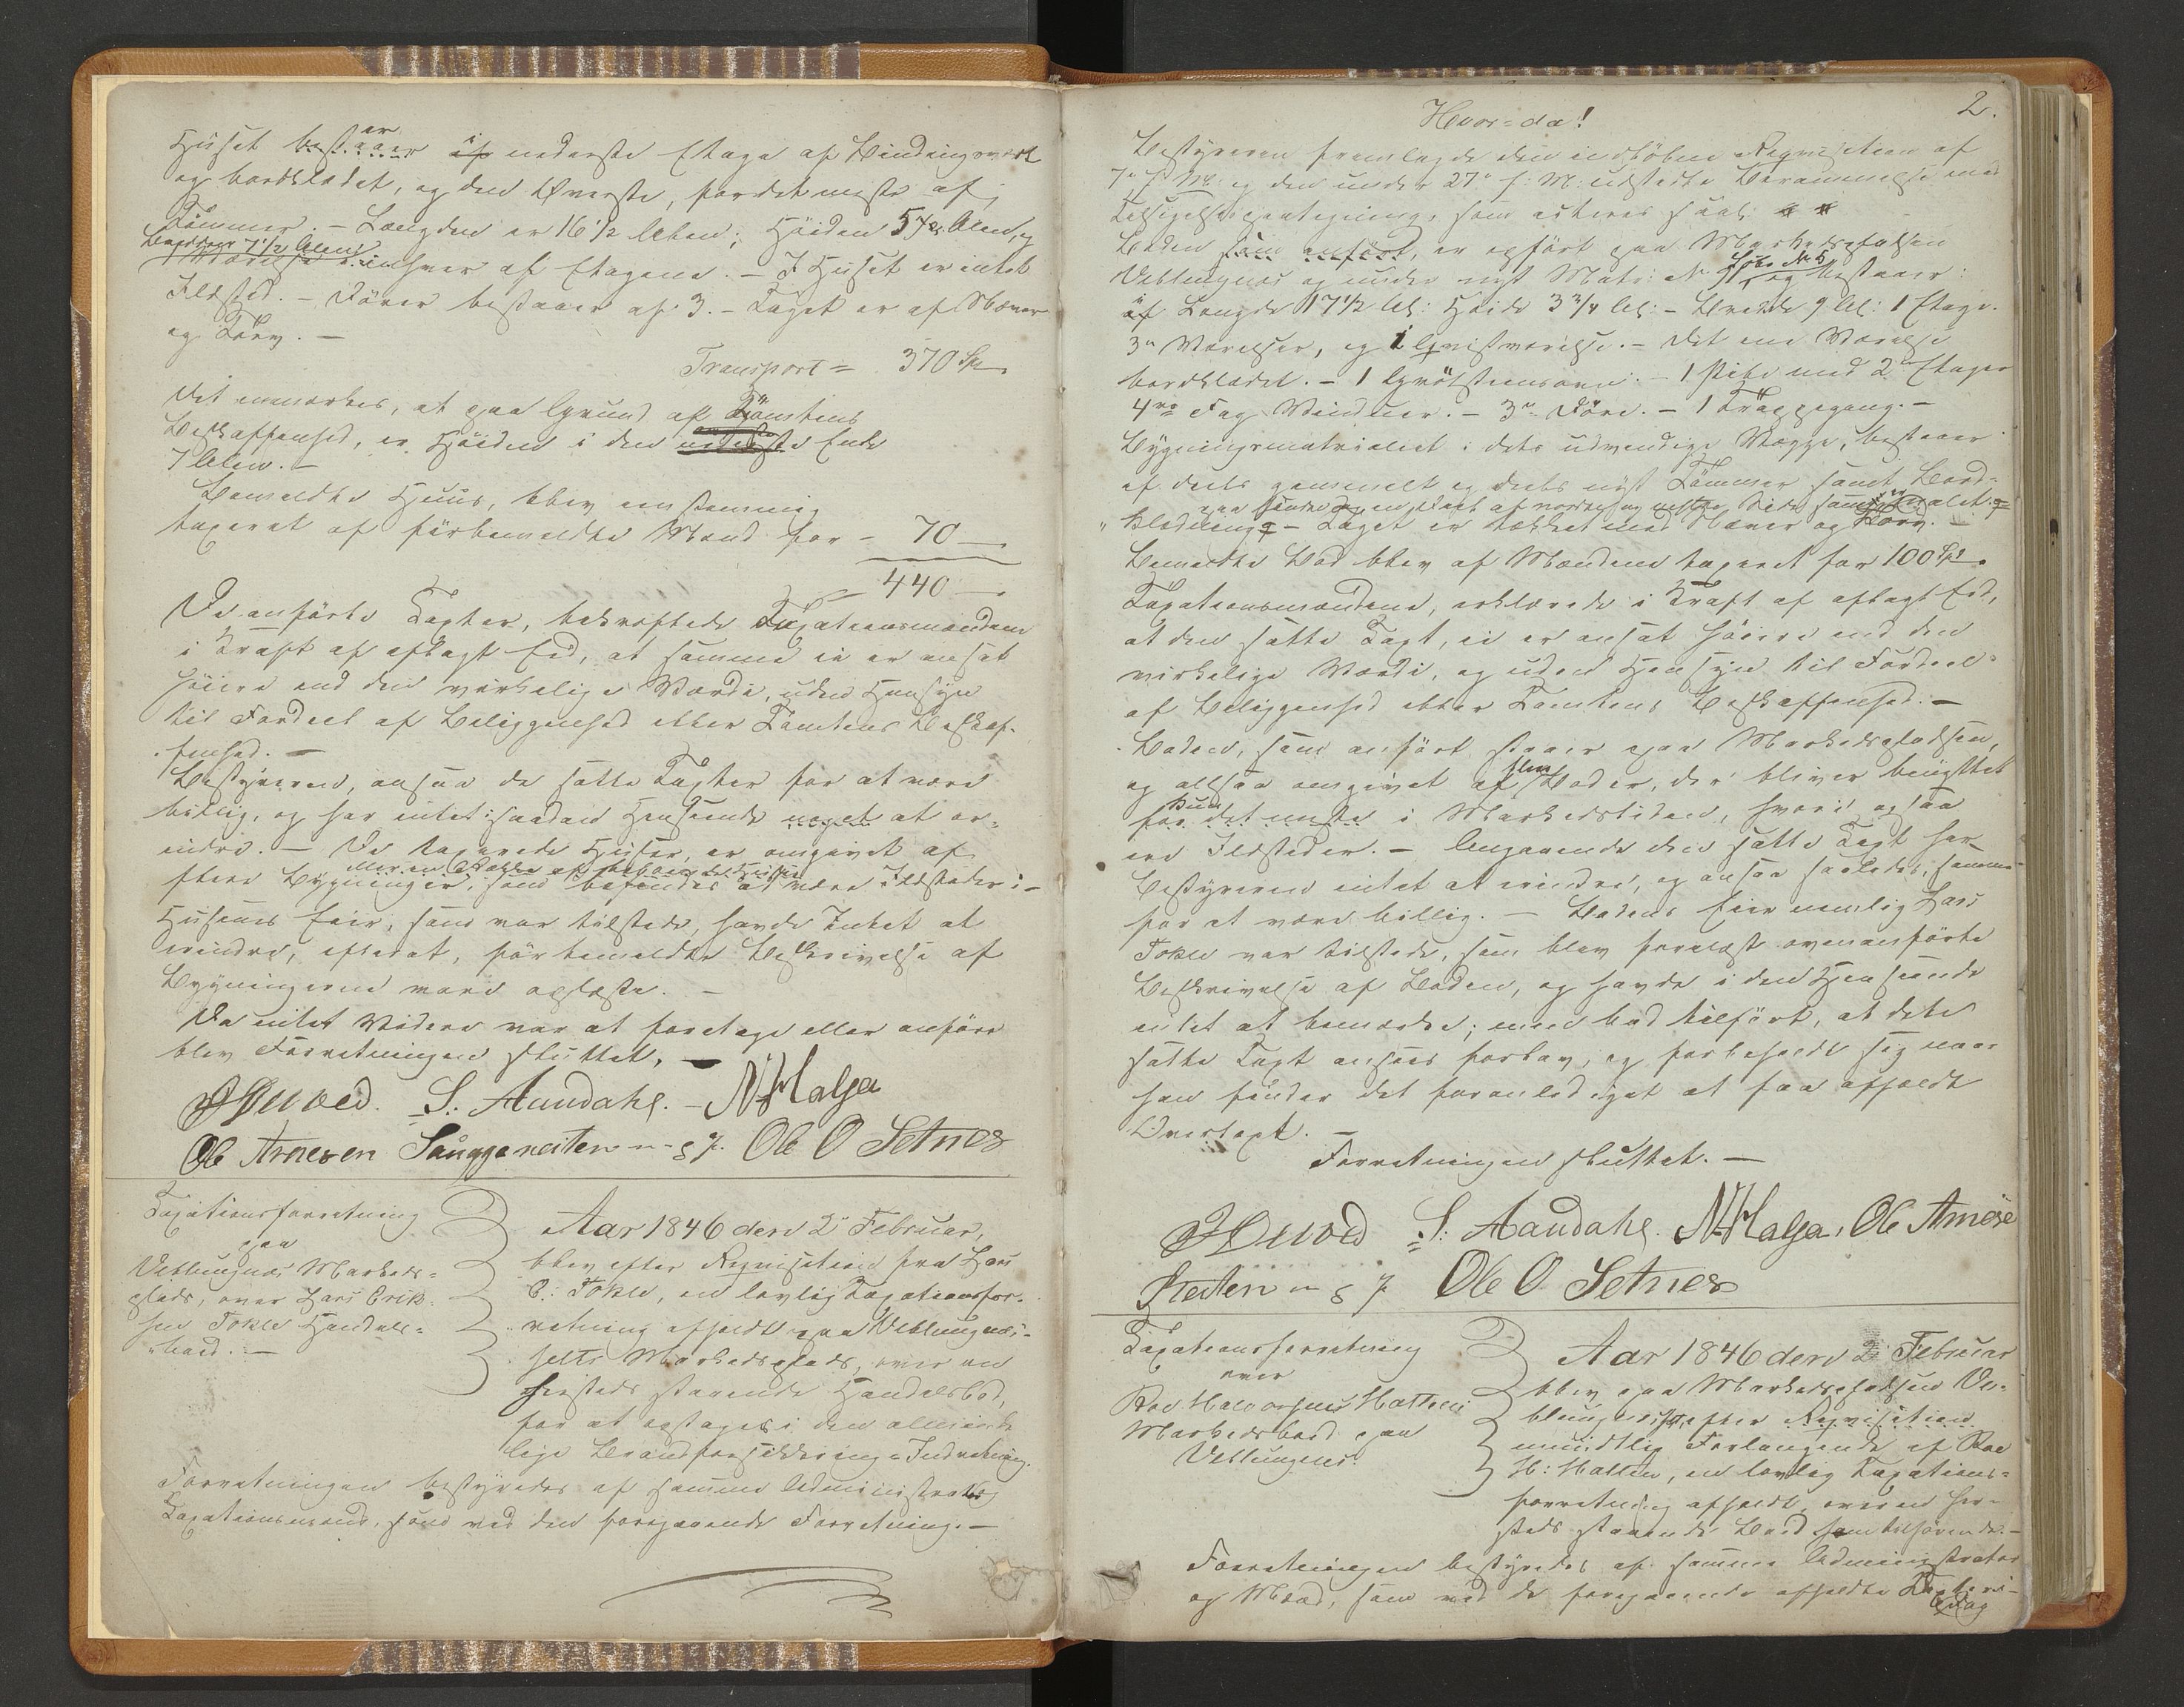 Huset bestaaer er af i nederste Etage af Bindingsværk
og bordklædet, og den Øverste, fordetmeste af
Tømmer. – Længden er 16 1/2 Alen; Høiden 5 1/2 Alen, og
Bredden 7 1/2 Alen.
1 Værelse i einhver af Etagene. – I Huset er intet
Ildsted. – Dører bestaaer af 3. – Taget er af Næver
og Törv. –
Transport = 370 Sp.
Det anmærkes, at paa Grund af Tomtens
Beskaffenhed, er Høiden i den nederste Ende
7 Alen. –
Bemeldte Huus, blev eenstemmig
taxeret af førbemeldte Mænd for – 70 –
440 –
De anførte Taxter, bekræftede Taxationsmændene
i Kraft af aflagt Eed, at samme ei er ansat
høiere end den virkelige Værdi, uden Hensyn
til Fordeel af Beliggenhed eller Tomtens Beskaf-
fenhed. –
Bestyreren, ansaa de satte Taxter for at være
billig, og har intet i saadan Henseende noget at er-
indre. – De taxerede Huser, er omgivet af
flere Bygninger, som befindes at være Ildsteder i –
Husenes Eier, som var tilstede, havde Intet at
erindre, efterat, førbemeldte Beskrivelse af
Bygningerne vare oplæste. –
Da intet Videre var at foretage eller anføre
blev Forretningen sluttet. –
S: Aandahl. – N Halsa
Ole Arnesen Sauggeneiten m. p. P. Ole O Setnes
Taxationsforretning
paa
Veblungnæs Markeds-
plads, over Lars Erik-
sen Tokle Handels-
boed. –
Aar 1846 den 2. Februar,
blev efter Reqvisition fra Lars
E: Tokle, en lovlig Taxationsfor-
retning afholdt paa Veblungnæs-
sets Markedsplads, over en
hersteds staaende Handelsbod,
for at optages i den alminde-
lige Brandforsikkrings-Indretning.
Forretningen bestyredes af samme Administrator og
Taxationsmænd, som ved den foregaaende Forretning. –
2.
Hvor-da!
Bestyreren fremlagde den indkomne Reqvisition af
7. f: M: og den under 27. f: M: udstedte Berammelse med
Tilsigelsespaategning, som acteres saal:
Boden som anført, er opført paa Markedspladsen
Veblungnæs og under nyt Matr: No Löbe No 5 og bestaaer:
af Længde 17 1/2 Al: Høide 3 3/4 Al: – Bredde 9 Al: 1 Etage.
3 Værelser, og 1 Qvistværelse. – Det ene Værelse
bordklædet. – 1 Grydesteensovn. – 1 Pibe med 2 Etager
4re Fag Vinduer. – 3 Döre. – 1 Trappegang. –
Bygningsmaterialiet i dets udvendige Vægge, bestaaer
af deels gammelt og deels nyt Tömmer samt Bord-
klædning – Taget er tækket med Næver og Törv.
Bemeldte Bod blev af Mændene taxeret for 100 Sp.
Taxationsmændene, erklærede i Kraft af aflagt Eed,
at den satte Taxt, ei er ansat høiere end den
virkelige Værdi, og uden Hensyn til Fordeel
af Beliggenhed eller Tomtens Beskaffenhed. –
Boden, som anført staaer paa Markedspladsen,
og altsaa omgivet af flere Boder, der bliver benyttet
kun
for det meste i Markedstiden, hvori ogsaa
ere Ildsteder. – Angaaende den satte Taxt har
Bestyreren intet at erindre, og ansaa saaledes, samme
for at være billig. – Bodens Eier nemlig Lars
Tokle var tilstede, som blev forelæst ovenanførte
Beskrivelse af Boden, og havde i den Henseende
intet at bemærke; men bad tilført, at dets
satte Taxt ansees forlav, og forbeholdt sig naar
han finder det foranlediget at faa afholdt
Overtaxt. –
Forretningen sluttet. –
S: Aandahl. N Halsa, Ole Arnese
Sneiten m p P Ole O. Setnes
Taxationsforretning
over
Roe Halvorsens Hatten
Markedsbod paa
Veblungnes.
Aar 1846 den 2. Februar
blev paa Markedspladsen Ve-
blungnæs efter Reqvisition
mundtlig Forlangende af Roe
H: Hatten, en lovlig Taxations-
forretning afholdt, over en her-
steds staaende Boed ham tilhørende. –
Forretningen bestyredes af samme Administrator
og Mænd, som ved de foregaaende afholdte Taxter. –